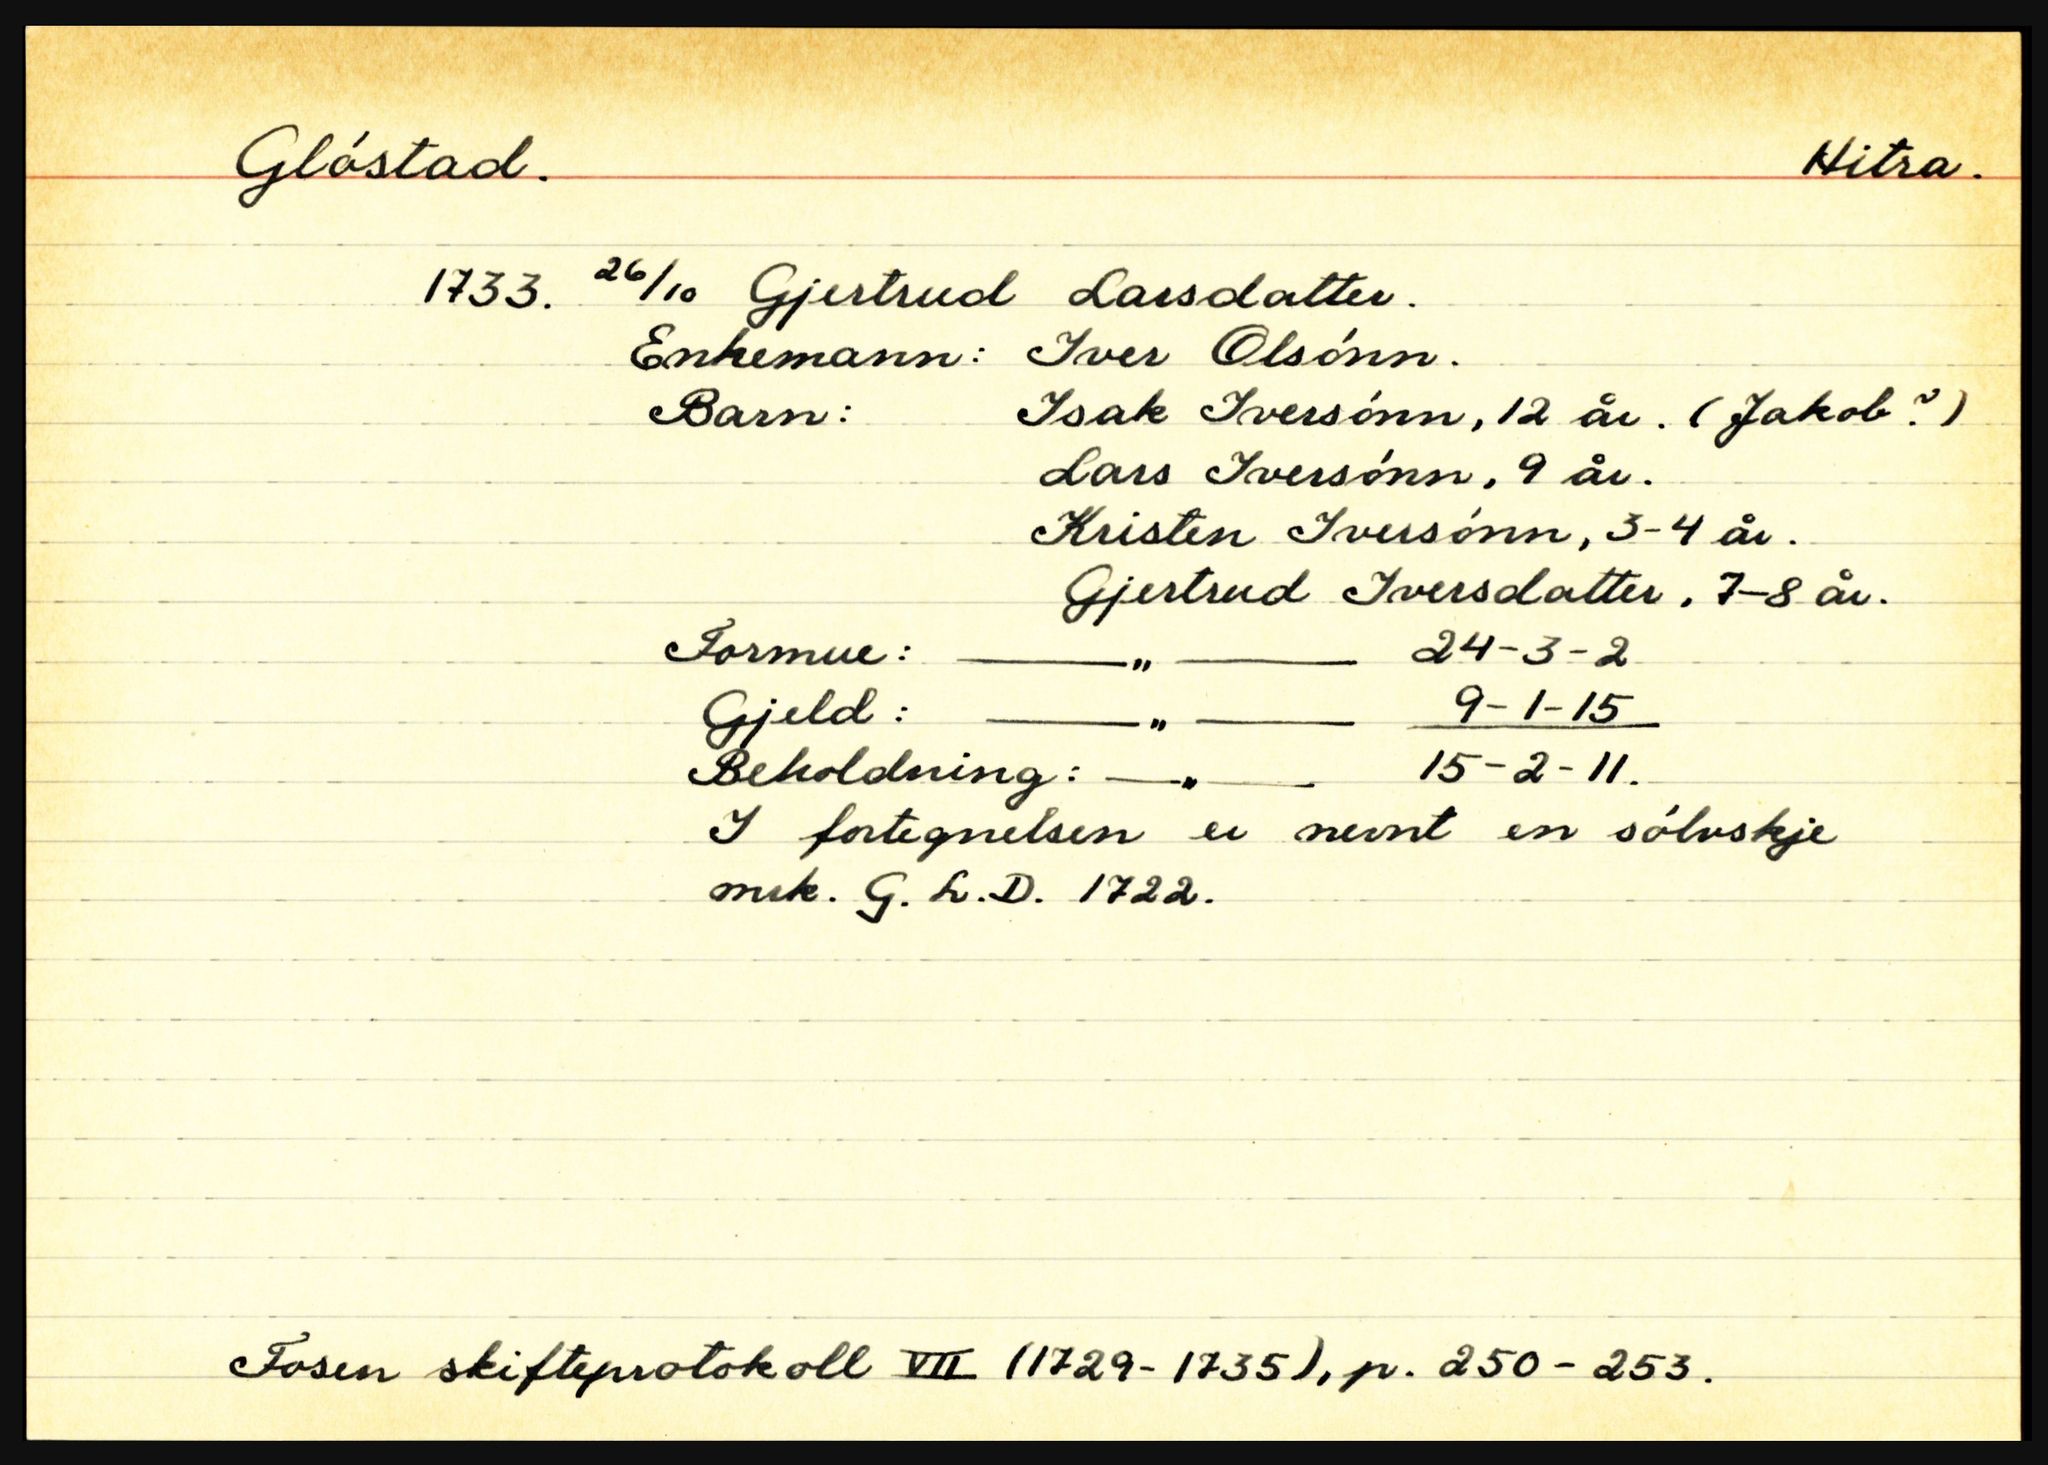 Glóstad. Hitra.
1733. 26/10 Gjertrud Larsdatter.
Enkemann: Iver Olsónn.
Barn: Isak Iversónn, 12 år. (Jakob?)
Lars Iversónn, 9 år.
Kristen Iversónn, 3-4 år.
Gjertrud Iversdatter, 7-8 år.
Formue: —„— 24-3-2
Gjeld: —„— 9-1-15
Beholdning: —„— 15-2-11.
I fortegnelsen er nevnt en sólvskje
mrk. G. L. D. 1722.
Fosen skifteprotokoll VII (1729-1735), p. 250-253.